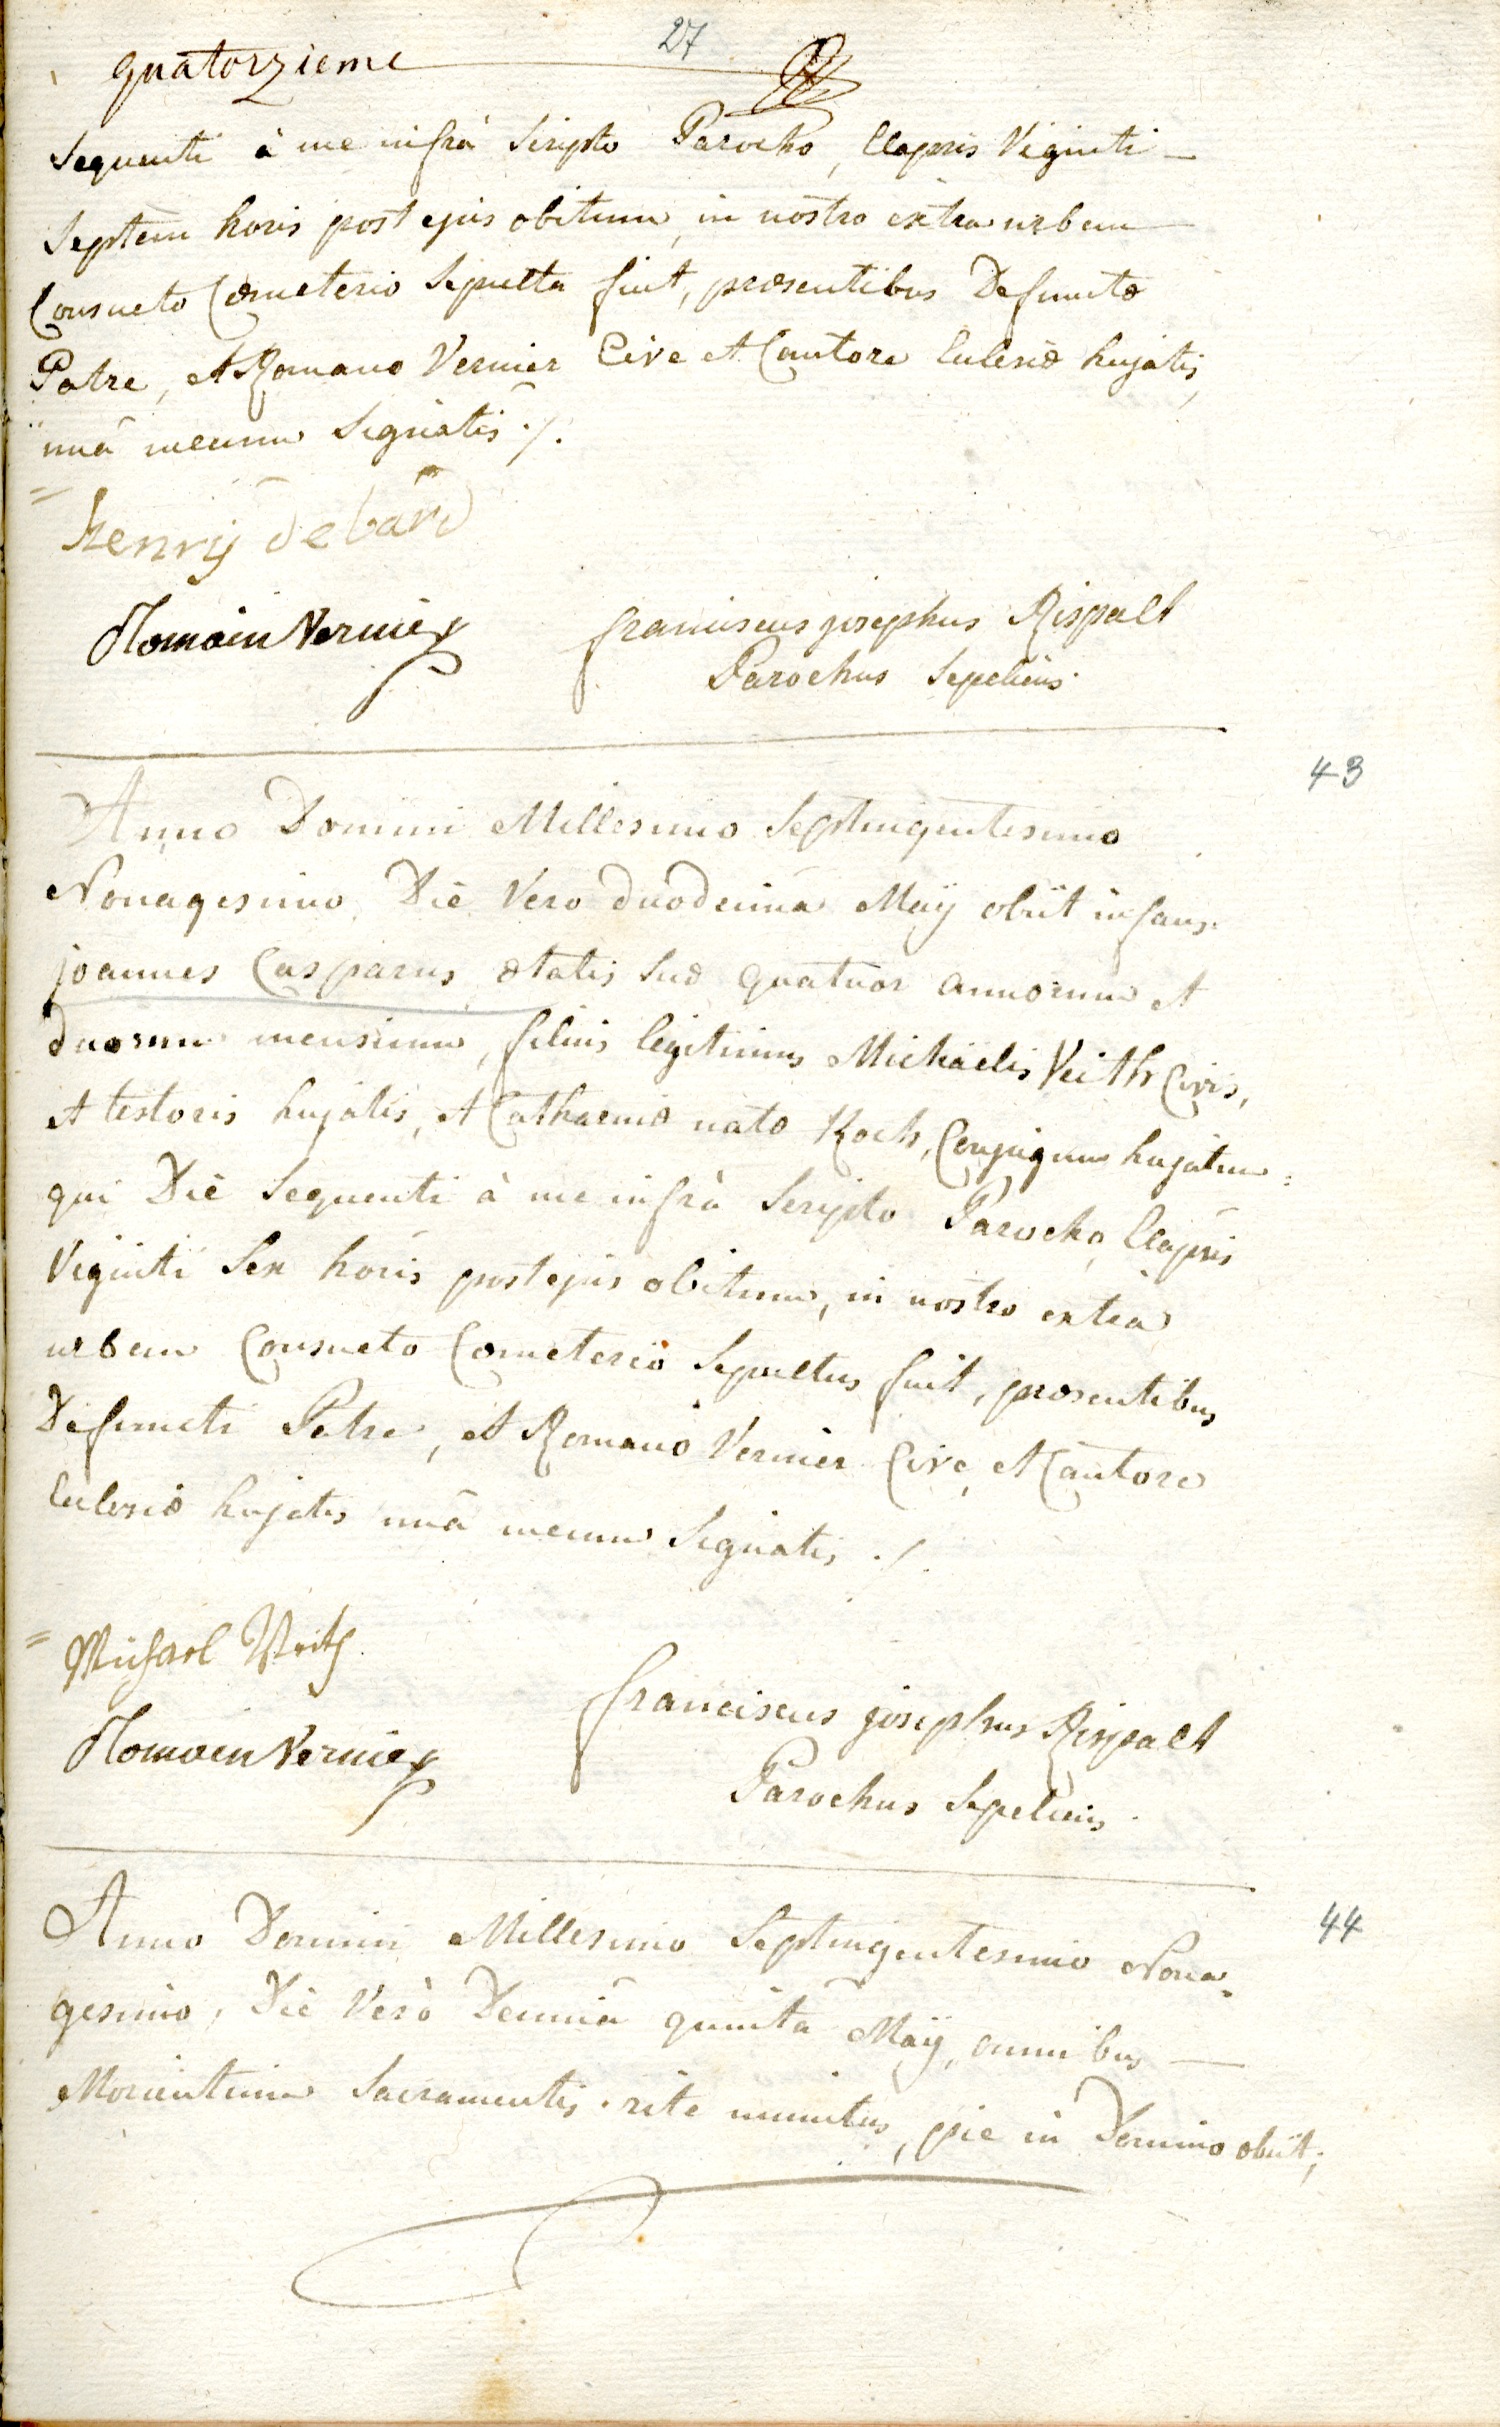 27
quatorzieme
sequenti à me infrà scripto Parocho, elapsis Viginti
septem horis post ejus obitum, in nostro extra urbem
Consueto Cœmeterio sepulta fuit, præsentibus Defunctæ
Patre, et Romano Vernier Cive et Cantore Ecclesiæ hujatis,
unà mecum signatis ./.
henrÿ debard
Romain Vernier franciscus josephus Rispalt
Parochus sepeliens.
43
Anno Domini Millesimo septingentesimo
Nonagesimo, Die Vero duodecima Maÿ obiit infans
joannes Casparus, ætatis suæ quatuor annorum et
duorum mensium, filius legitimus Michäelis Veith Civis,
et textoris hujatis, et Catharinæ natæ Koch, Conjugum hujatum:
qui Die sequenti à me infrà scripto Parocho, elapsis
Viginti sex horis post ejus obitum, in nostro extra
urbem Consueto Cometerio sepultus fuit, præsentibus
Defuncti Patre, et Romano Vernier Cive, et Cantore
Ecclesiæ hujatis unà mecum signatis ./.
Michael Veith
Romain Vernier franciscus josephus Rispalt
Parochus sepeliens.
44
Anno Domini Millesimo septingentesimo Nona-
gesimo, Die Verò Decimâ quintâ Maÿ, omnibus
Morientium sacramentis rite munitus, pie in Domino obiit,